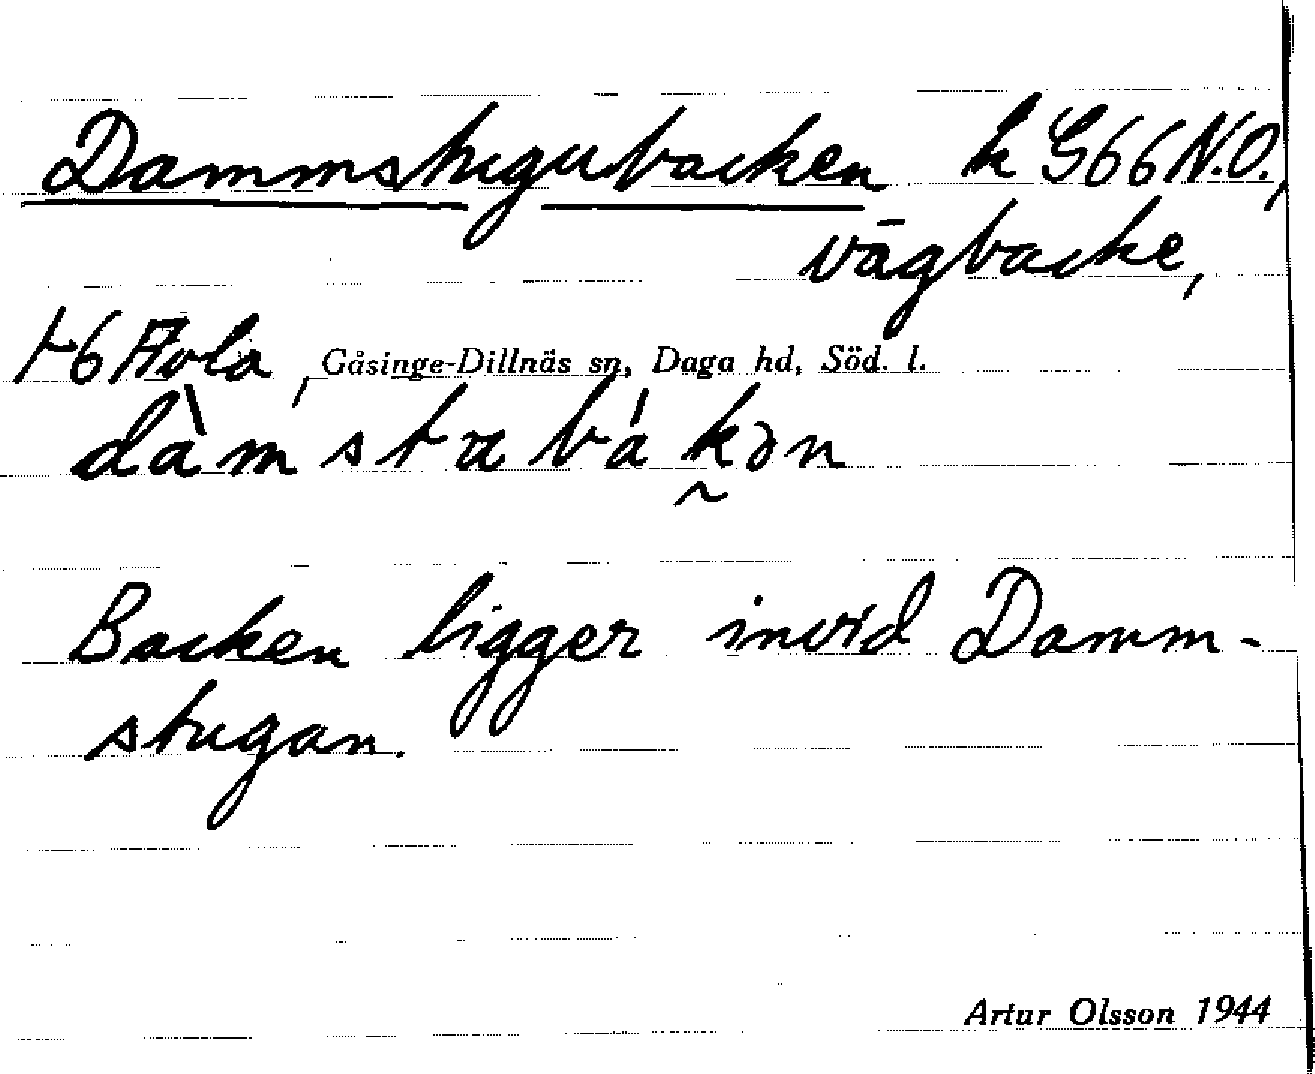 Dammstugubacken k G66 N.O.,
vägbacke,
t6 Avla, Gåsinge-Dillnäs sn, Daga hd, Söd. l.
dàmstabákən
Backen ligger invid Damm-
stugan.
Artur Olsson 1944